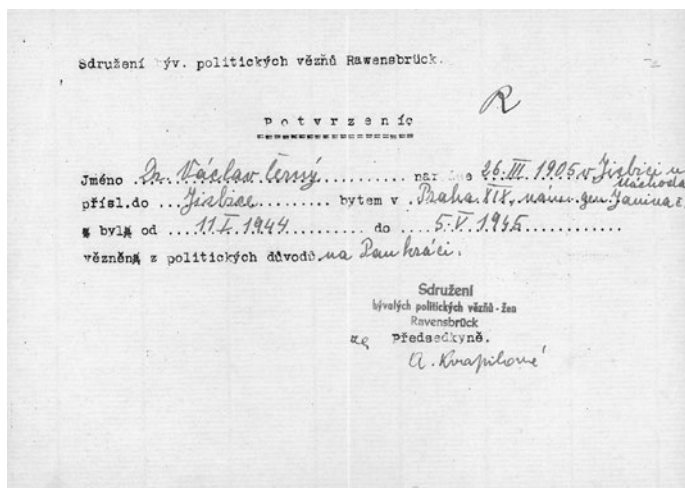 Sdružení býv. politických vězňů Rawensbrück.
R
Potvrzeníc
Jméno Dr. Václav Černý nar 26.III.1905 v Jizbici u
Náchoda
přísl.do Jizbice bytem v Praha XIX, nám. gen. Janina č.
byl od 11.I.1944 do 5.V.1945
vězněn z politických důvodů na Pankráci.
Sdružení
bývalých politických vězňů - žen
Ravensbrück
za Předsedkyně.
A. Kvapilové